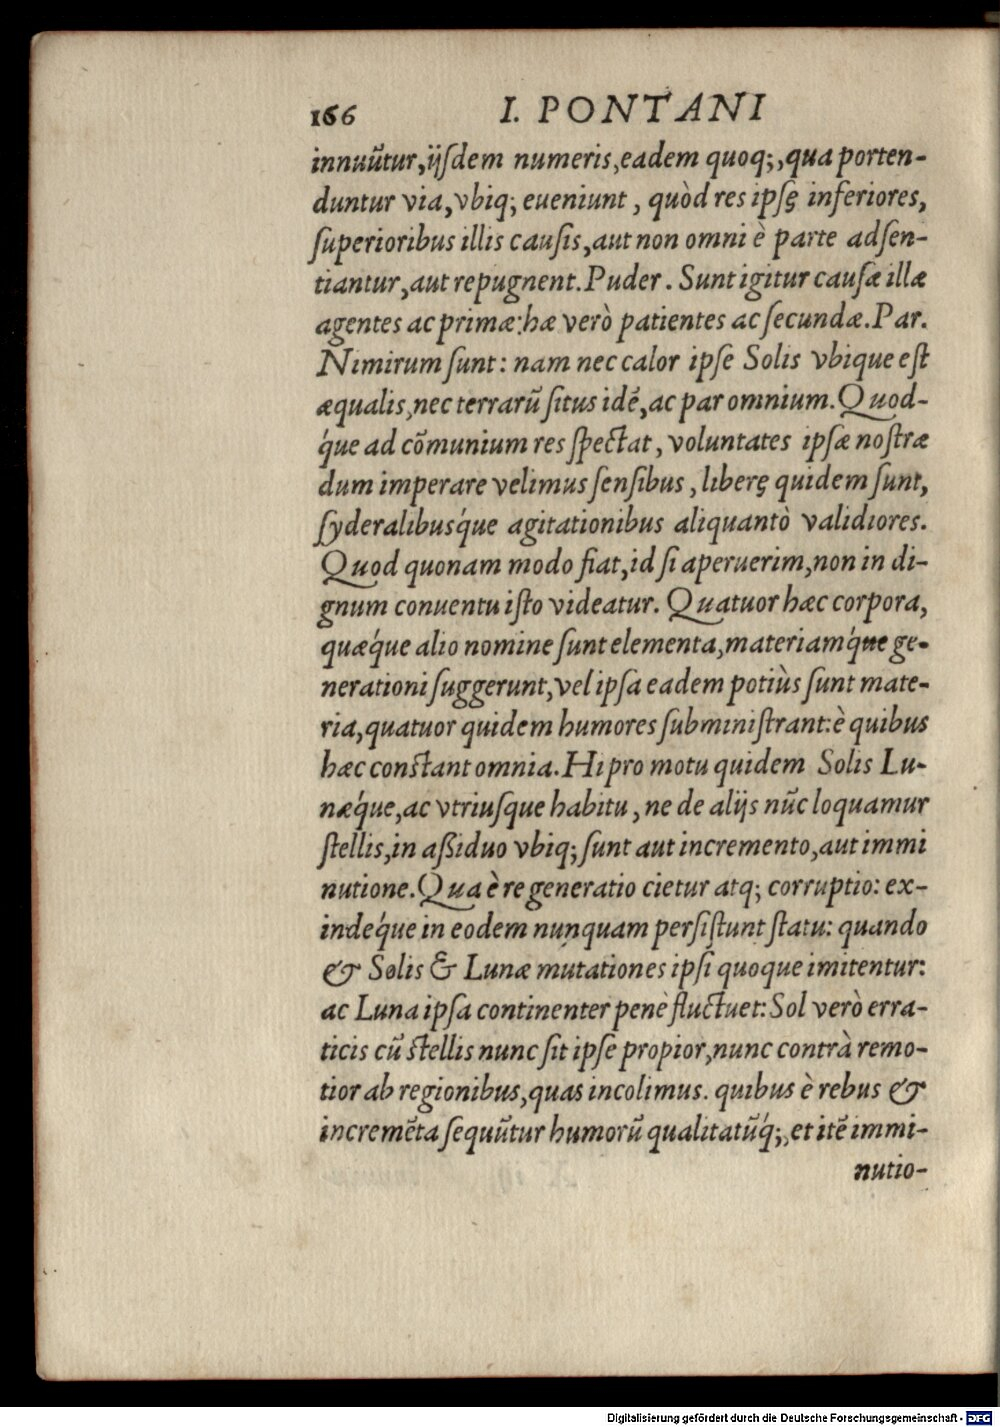 166 I. PONTANI
innuũtur, ijſdem numeris, eadem quoq;, qua porten-
duntur via, vbiq; eueniunt, quòd res ipſę inferiores,
ſuperioribus illis cauſis, aut non omni è parte adſen-
tiantur, aut repugnent. Puder. Sunt igitur cauſæ illæ
agentes ac primæ: hæ verò patientes ac ſecundæ. Par.
Nimirum ſunt: nam nec calor ipſe Solis vbique eſt
æqualis, nec terrarũ ſitus idẽ, ac par omnium. Quod-
q́ue ad cõmunium res ſpectat, voluntates ipſæ noſtræ
dum imperare velimus ſenſibus, liberę quidem ſunt,
ſyderalibusq́ue agitationibus aliquantò validiores.
Quod quonam modo fiat, id ſi aperuerim, non in di-
gnum conuentu iſto videatur. Quatuor hæc corpora,
quæq́ue alio nomine ſunt elementa, materiamq́ue ge-
nerationi ſuggerunt, vel ipſa eadem potiùs ſunt mate-
ria, quatuor quidem humores ſubminiſtrant: è quibus
hæc conſtant omnia. Hi pro motu quidem Solis Lu-
næq́ue, ac vtriuſque habitu, ne de alijs nũc loquamur
ſtellis, in aßiduo vbiq; ſunt aut incremento, aut immi
nutione. Qua è re generatio cietur atq; corruptio: ex-
indeq́ue in eodem nunquam perſiſtunt ſtatu: quando
& Solis & Lunæ mutationes ipſi quoque imitentur:
ac Luna ipſa continenter penè fluctuet: Sol verò erra-
ticis cũ ſtellis nunc ſit ipſe propior, nunc contrà remo-
tior ab regionibus, quas incolimus. quibus è rebus &
incremẽta ſequũtur humorũ qualitatũq́;, et itẽ immi-
nutio-
Digitalisierung gefördert durch die Deutsche Forschungsgemeinschaft - DFG